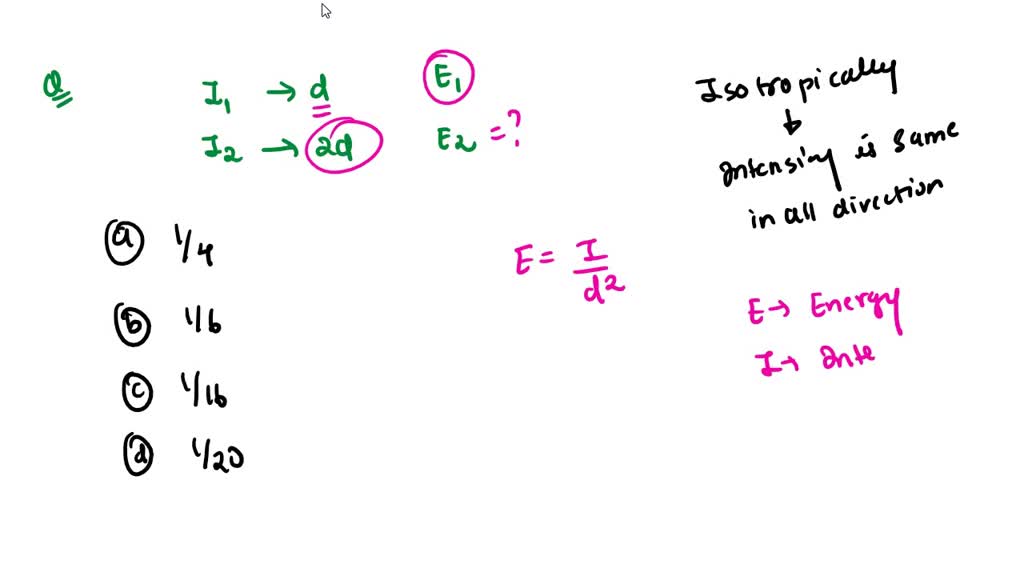 Q I₁ → d E₁
I₂ → 2d E₂ = ?
Isotropically
↓
Intensity is same
in all direction
(a) 1/4
(b) 1/6
(c) 1/16
(d) 1/20
E = I/d²
E → Energy
I → Inte